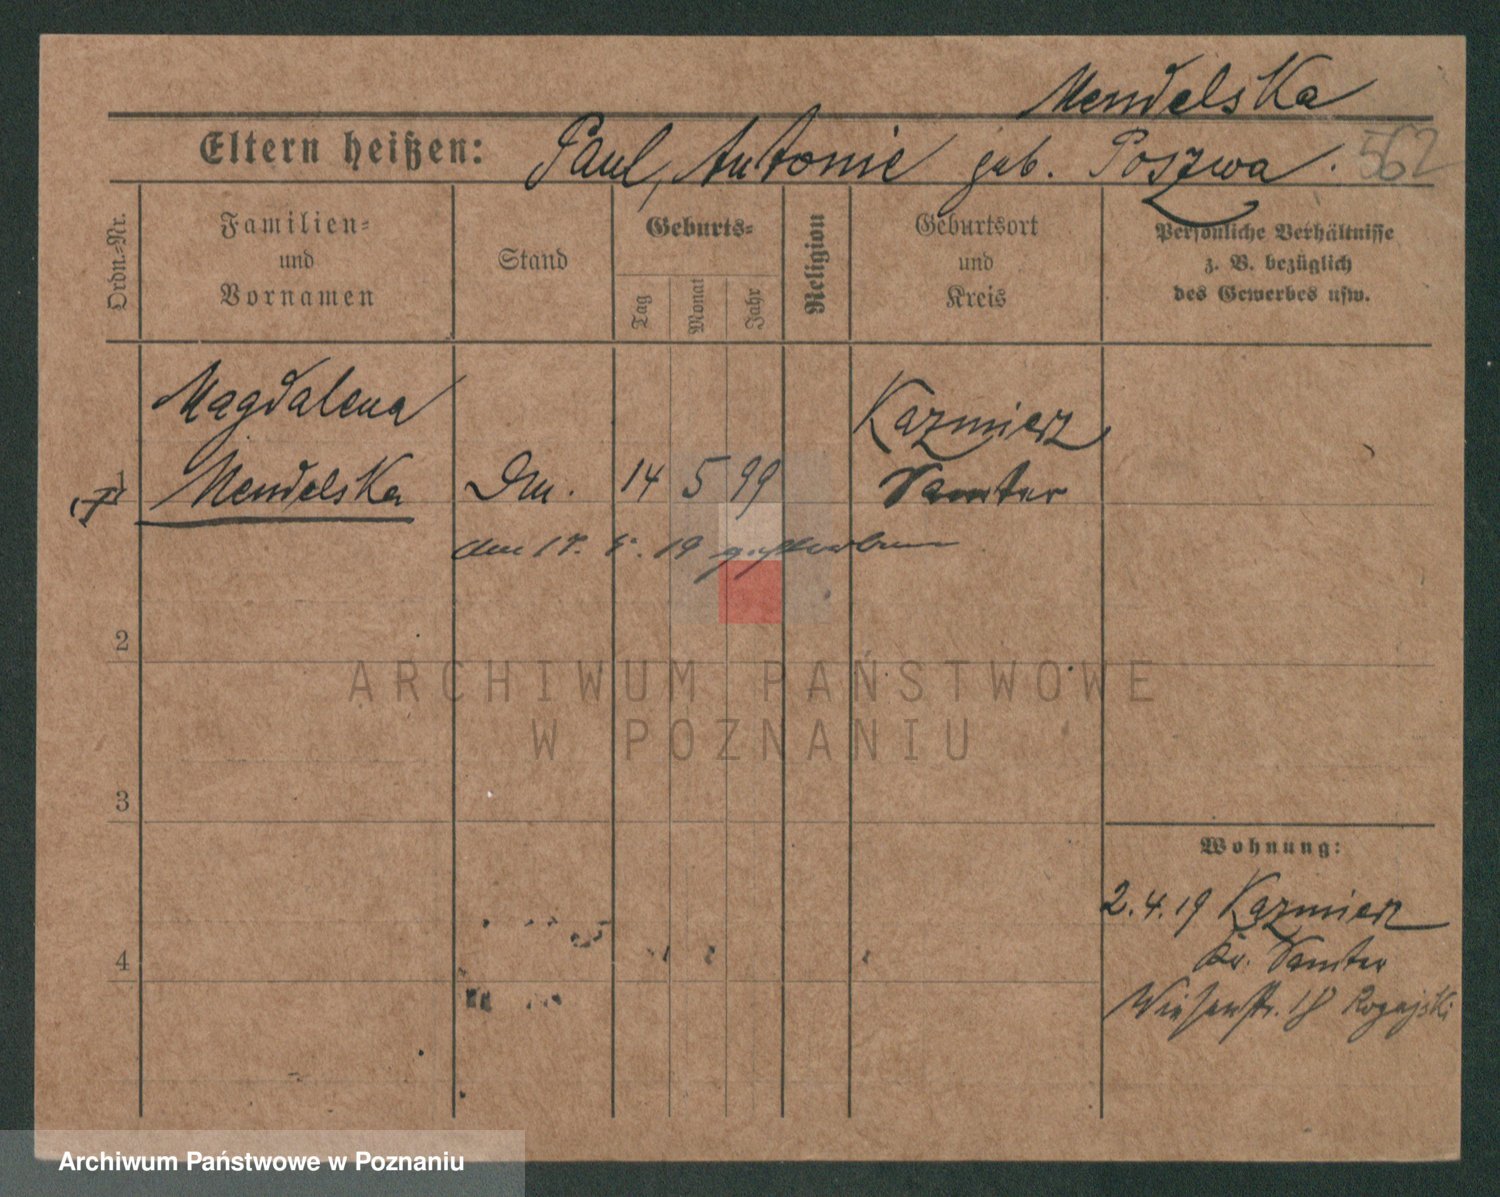 Mendelska
Eltern heißen: Paul, Antonie geb. Poszwa.
562
Ordn.-Nr.
Familien-
und
Vornamen
Stand
Geburts-
Tag
Monat
Jahr
Religion
Geburtsort
und
Kreis
Persönliche Verhältnisse
z. B. bezüglich
des Gewerbes usw.
Magdalena
1 Mendelska Dm. 14 5 99
Kazmierz
Samter
den 15. 5. 19 gestorben
2
3
4
Wohnung:
2.4.19 Kazmierz
Kr. Samter
Wiesenstr. 18 Rogajski
ARCHIWUM PAŃSTWOWE
W POZNANIU
Archiwum Państwowe w Poznaniu